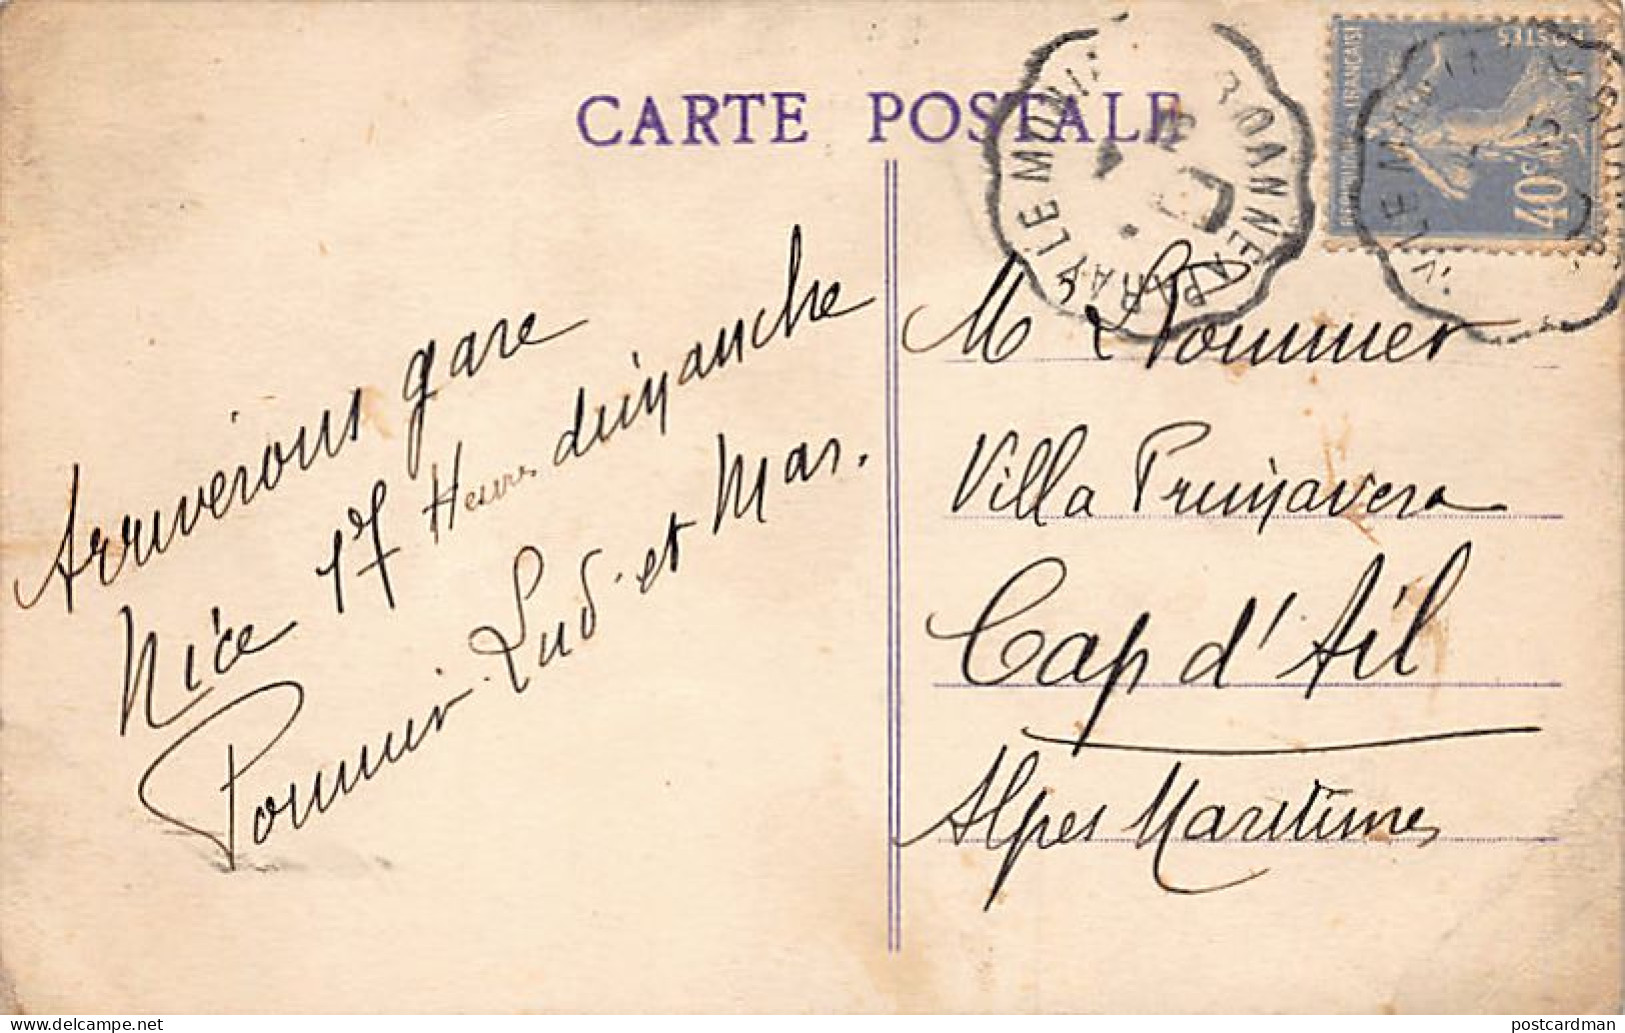 CARTE POSTALE
ROANNE A PARAY LE MONIAL
RÉPUBLIQUE FRANÇAISE
POSTES
40c
Arriverons gare
Nice 17 Heures dimanche
Pommier Lud. et Mar.
M Pommier
Villa Primavera
Cap d'Ail
Alpes Maritimes
postcardman